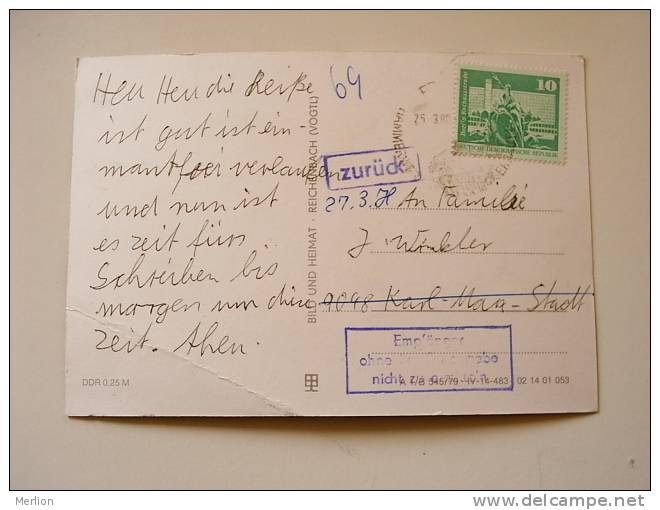 Herr Herr die Reise
ist gut ist ein-
mantfrei verlaufen
und nun ist
es zeit fürs
Schreiben bis
morgen um diese
zeit. Ahen.
DDR 0.25 M
BILD UND HEIMAT · REICHENBACH (VOGTL)
69
25. 3.80
10
DEUTSCHE DEMOKRATISCHE REPUBLIK
zurück
27.3. An Familie
J. Winkler
9048 Karl-Marx-Stadt
Empfänger
ohne
nicht zu
A 1/B 545/79 · IV-14-483 02 14 01 053
Merlion
delcampe.net